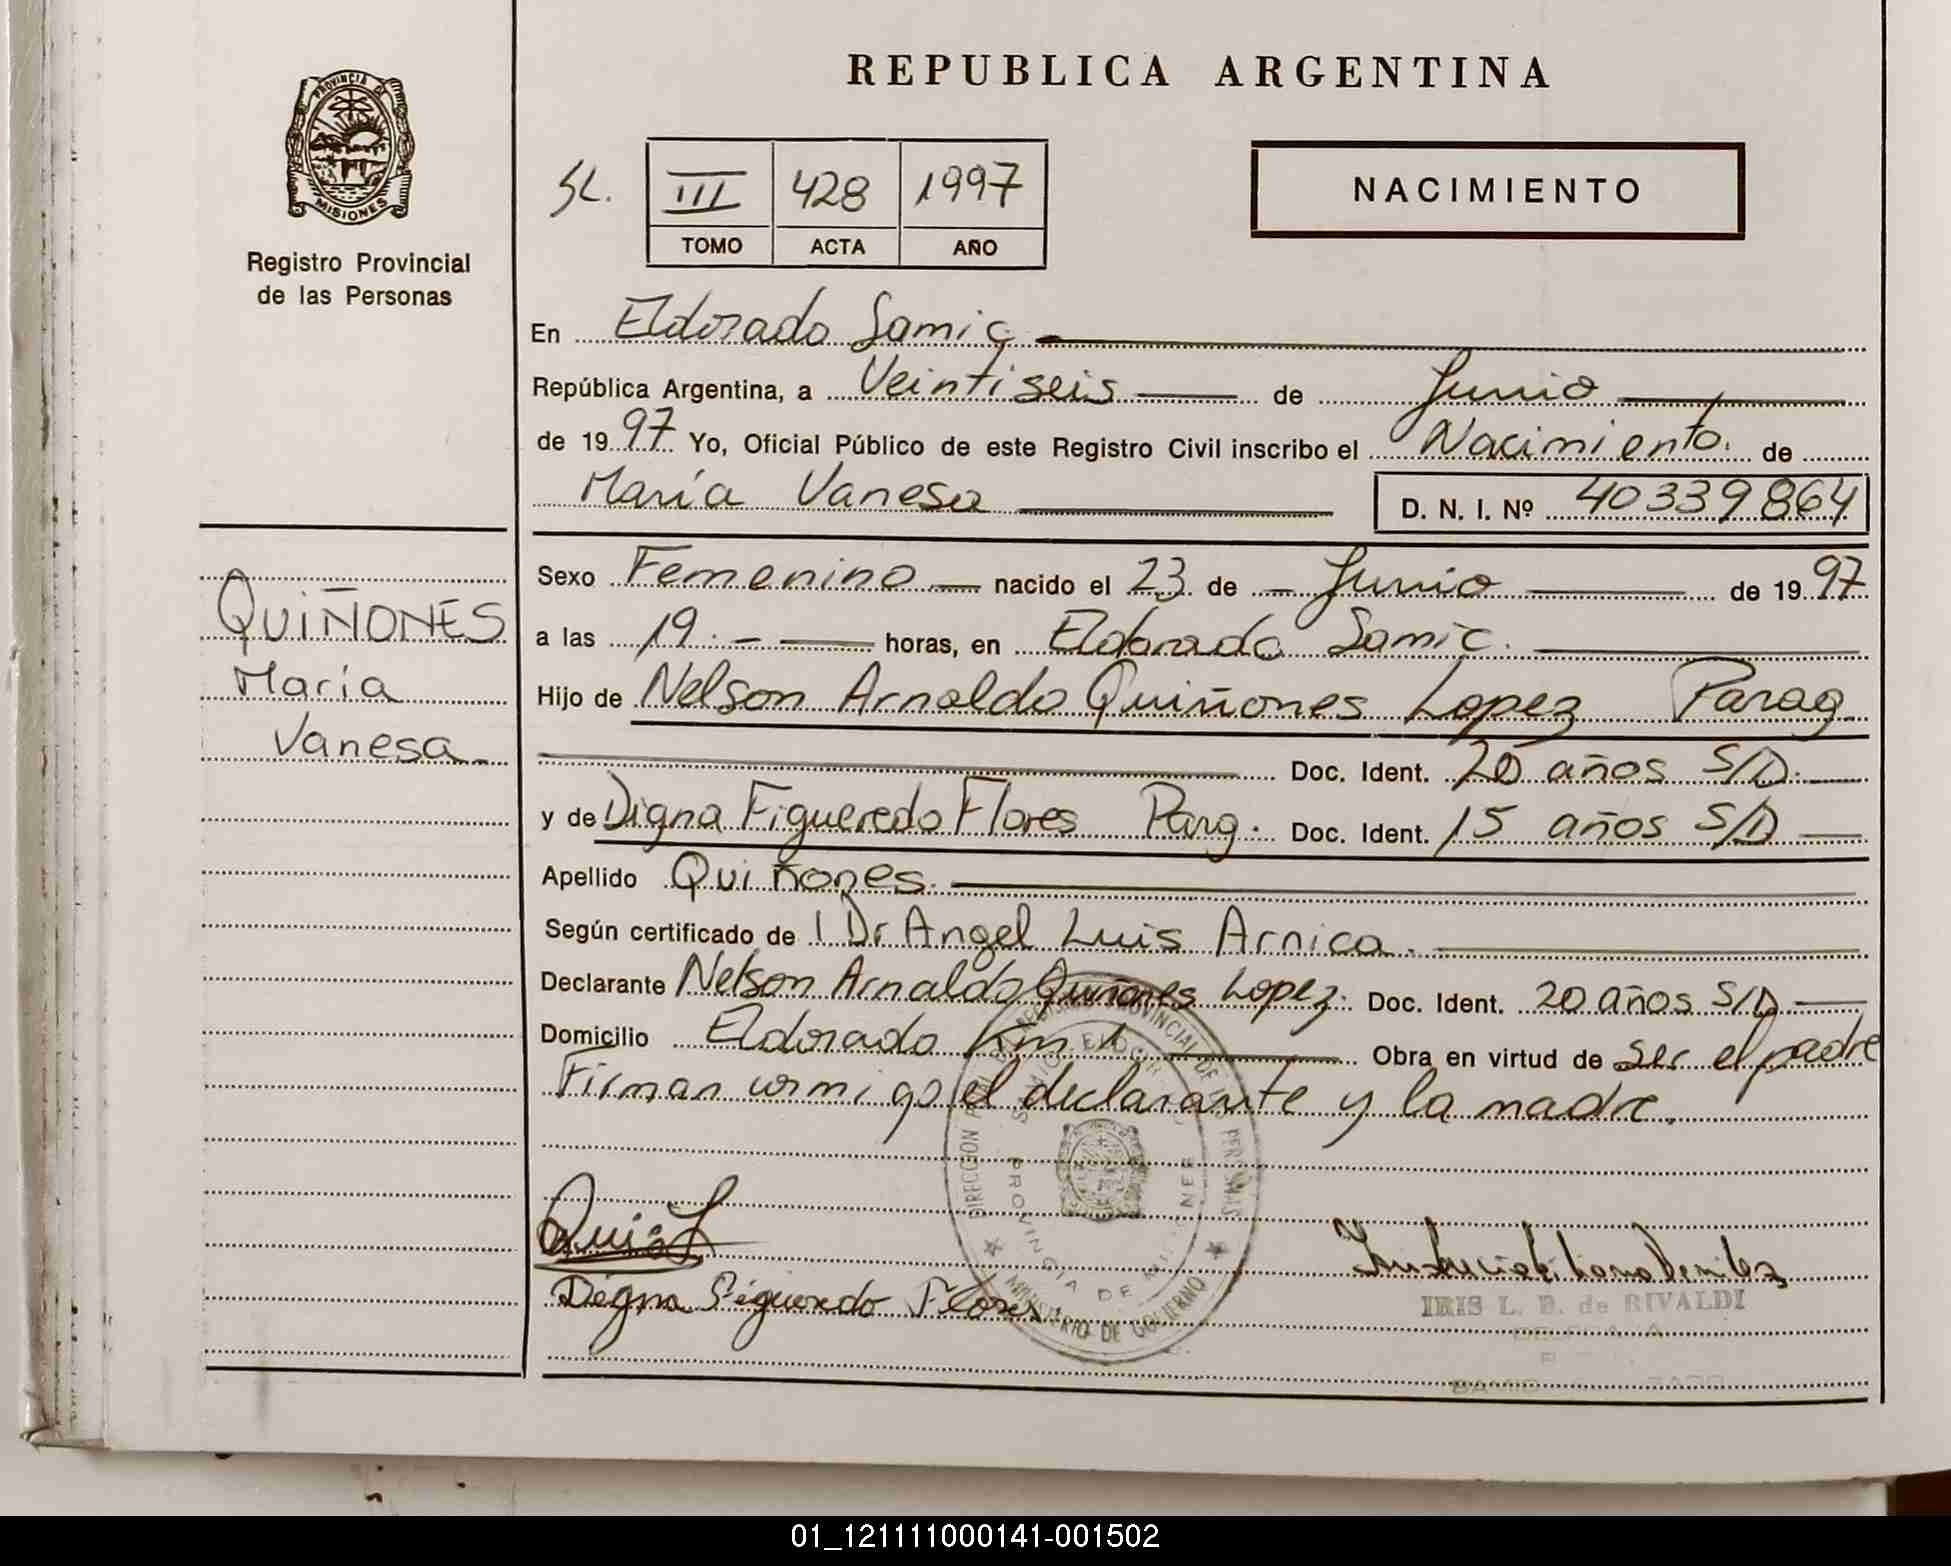 PROVINCIA DE
MISIONES
Registro Provincial
de las Personas
QUIÑONES
María
Vanesa
REPUBLICA ARGENTINA
SL. III 428 1997
TOMO ACTA AÑO
NACIMIENTO
En Eldorado Samic
República Argentina, a Veintiseis de Junio
de 1997 Yo, Oficial Público de este Registro Civil inscribo el Nacimiento. de
María Vanesa D. N. I. Nº 40339864
Sexo Femenino nacido el 23 de Junio de 1997
a las 19. horas, en Eldorado Samic.
Hijo de Nelson Arnaldo Quiñones Lopez Parag.
Doc. Ident. 20 años S/D.
y de Digna Figueredo Flores Parg. Doc. Ident. 15 años S/D
Apellido Quiñones.
Según certificado de 1 Dr Angel Luis Arnica.
Declarante Nelson Arnaldo Quiñones Lopez. Doc. Ident. 20 años S/D
Domicilio Eldorado Km 1 Obra en virtud de ser el padre
Firman conmigo el declarante y la madre.
PROVINCIAL DE
DIRECCION
PROVINCIA DE
MINISTERIO DE GOBIERNO
Digna Figueredo Flores
IRIS L. B. de RIVALDI
01_121111000141-001502